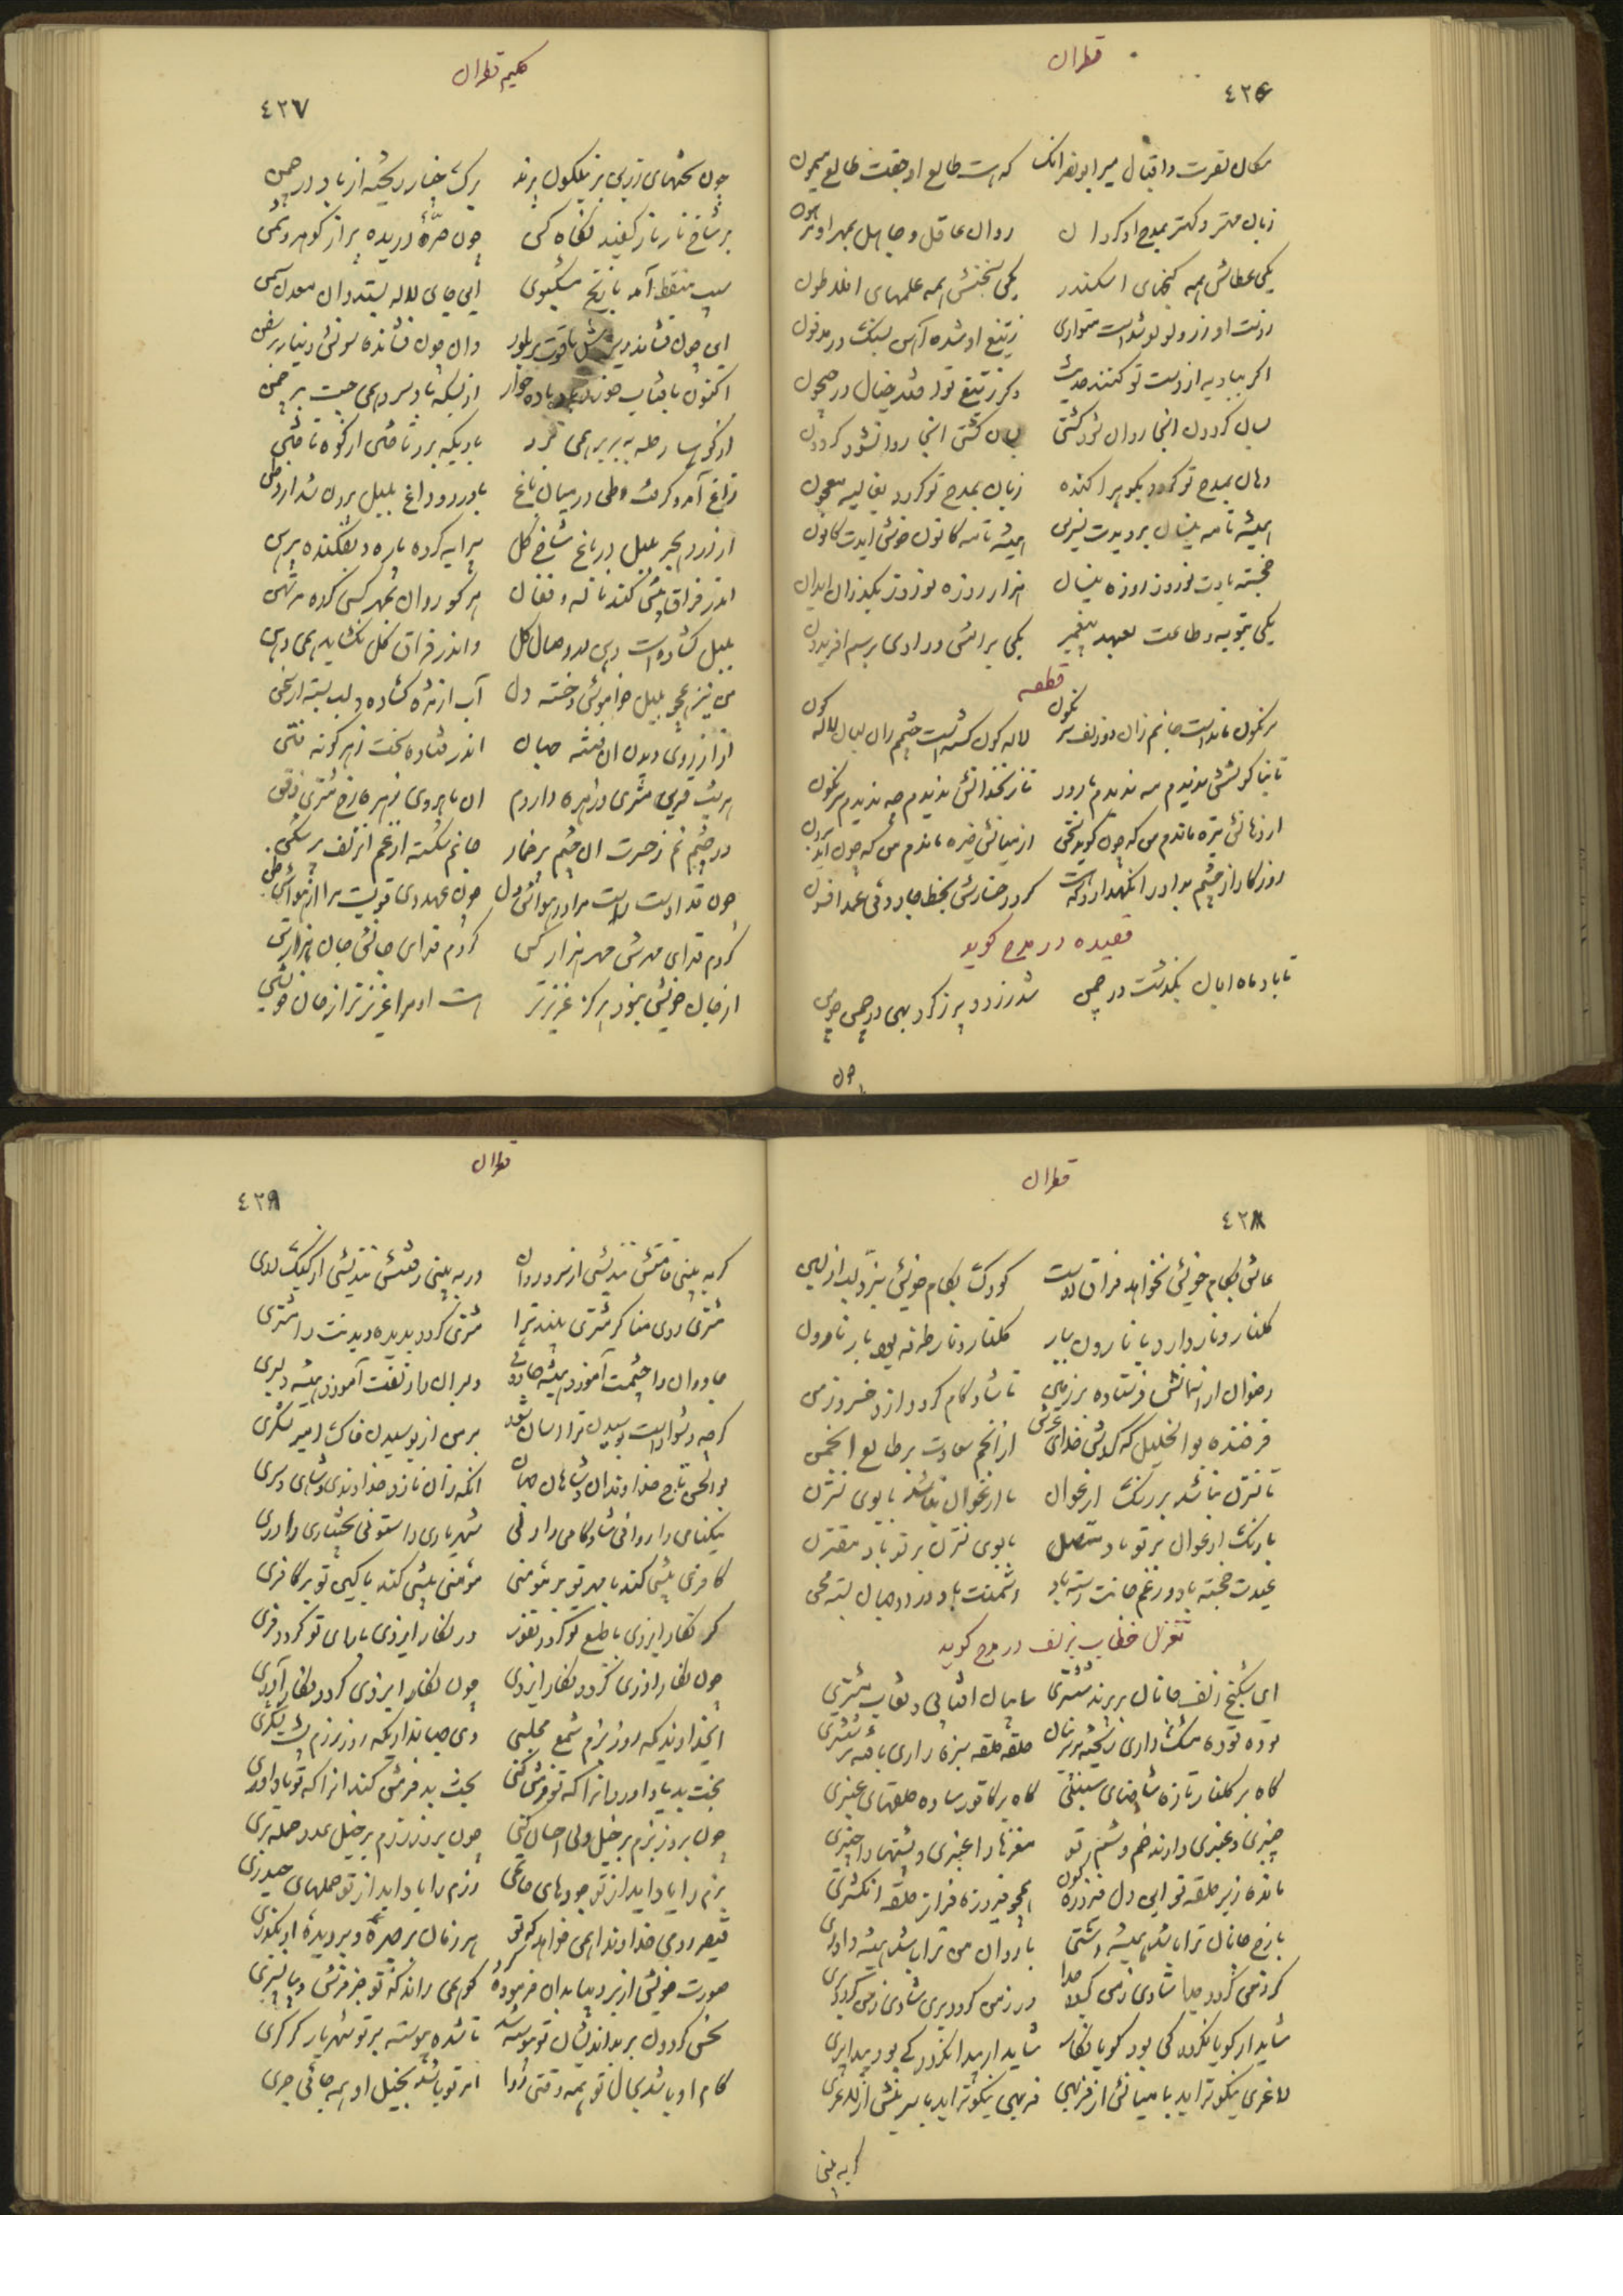 قطران
٤٢٦
مکان نصرت و اقبال میر ابونصر آنک که هست طالع او جفت طالع میمون
زبان مهتر و کهتر بمدح او گردان روان عاقل و جاهل بمهر او مرهون
یکی عطاش همه گنجهای اسکندر یکی سخنش همه علمهای افلاطون
زدست او زر و لولو شدست متواری زتیغ او شده آهن بسنگ در مدفون
اگر ببادیه از دست تو کنند حدیث وگر زتیغ تو افتد خیال در جیحون
بسان گردون آنجا روان شود کشتی بسان کشتی اینجا روان شود گردون
دهان بمدح تو گردد بگوهر آکنده زبان بمدح تو گردد بغالیه معجون
همیشه تا مه نیسان بر دیدت تشرین همیشه تا مه کانون خوش آیدت کانون
خجسته بادت نوروز و روزه نیسان هزار روزه و نوروز بگذران ایدون
یکی بتوبه و طاعت بعهد پیغمبر یکی برامش و رادی برسم افریدون
قطعه
سرنگون مانده است جانم زان دو زلف سرنگون لاله گون گشتست چشمم زان لبان لاله گون
تا بناگوشش ندیدم مه ندیدم بارور تا زنخدانش ندیدم چه ندیدم سرنگون
از دهانش تیره ماندم من که چون گوید سخن از میانش خیره ماندم من که چون آید برون
روزگار از چشم بد او را نگهدارد که هست گرد رخسارش بخط جادوئی عمدا فسون
قصیده در مدح گوید
تا باد ماه آبان بگذشت در چمن شد زرد و پر ز گرد بهی در چمن چو من
چون
حکیم قطران
٤٢٧
چون تختهای زرین بر نیلگون پرند برگ چنار ریخته از باد در چمن
بر شاخ نار نار کفیده نگاه کن چون حرّهٔ دریده پر از گوهر وثمن
سیب منقط آمد و نارنج مشکبوی این جای لاله بستد و آن معدن سمن
این چون فشانده ریزش یاقوت بر بلور وان چون فشانده سونش دینار بر سفن
اکنون بآفتاب خزند باده خوار از بسکه باد سرد همی جست بر چمن
از کوهسار حله ببرید همی خرد بادیکه برد تا ختن از کوه تا ختن
زاغ آمد و گرفت وطن در میان باغ با درد و داغ بلبل بیرون شد از وطن
از درد هجر بلبل در باغ شاخ گل پیرایه کرده پاره و بفکنده پیرهن
اندر فراق بیش کند ناله و فغان هر کو روان بمهر کسی کرده مرتهن
بلبل گشاده است دهن در وصال گل واندر فراق گل نگشاید همی دهن
من نیز همچو بلبل خاموش و خسته دل آب از مژه گشاده و لب بسته از سخن
از آرزوی دیدن آن فتنه جهان اندر فتاده سخت بهر گونه فتن
هر شب قرین مشتری و زهره دارم آن ماهروی زهره رخ مشتری ذقن
در چشم نم زحسرت آن چشم پر خمار جانم شکسته از غم آن زلف پر شکن
چون قد اوست راست مرا در هواش دل چون عهد وی قویست مرا از هواش ظن
کردم فدای مهرش مهر هزار کس کردم فدای جانش جان هزار تن
از جان خویش نبود هرگز عزیزتر هست او مرا عزیزتر از جان خویشتن
قطران
٤٢٨
عاشق بکام خویش نخواهد فراق دوست کودک بکام خویش نبرد لب از لبن
گلنار و نار دارد با نارون ببار گلنار و نار طرفه بود بار نارون
رضوان از آسمانش فرستاده بر زمین تا شادکام گردد از او خسرو زمن
فرخنده بوالخلیل که کردش خدای عرش از انجم سعادت بر طالع انجمن
تا نسترن نباشد بر رنگ ارغوان تا ارغوان نباشد با بوی نسترن
با رنگ ارغوان بر تو باد متصل با بوی نسترن بر تو باد مقترن
عیدت خجسته باد وز غم جانت رسته باد دشمنت باد درد دو جهان بسته محن
تغزل خطاب بزلف در مدح گوید
ای شکنج زلف جانان بر پرند ششتری سایبان آفتابی و نقاب مشتری
توده توده مشک داری ریخته بر پرنیان حلقه حلقه سبزه داری بافته بر ششتری
گاه بر گلنار تازه شاخهای سنبلی گاه بر کافور ساده حلقهای عنبری
چنبری و عنبری دارند خم و شم تو مغزها را عنبری و پشتها را چنبری
مانده زیر حلقه تو این دل فیروزه گون همچو فیروزه فراز حلقه انگشتری
با رخ جانان ترا باشد همیشه دشمنی با روان من ترا باشد همیشه داوری
گر زمی گردد جدا شادی زمی گیرد جدا ور زمی گردد بری شادی زمی گردد بری
شاید ار گویا نگردد کی بود گویا نگار شاید ار پیدا نگردد کی بود پیدا پری
لاغری نیکوتر آید با میانش از فربهی فربهی نیکوتر آید با سرینش از لاغری
گر به بینی
قطران
٤٢٩
گر به بینی قامتش نندیشی از سرو روان ور به بینی رفتنش نندیشی از کبک دری
مشتری روی منا گر مشتری بیند ترا مشتری گردد بدیده دیدنت را مشتری
جادوان را چشمت آموزد همیشه جادوئی دلبران را زلفت آموزد همیشه دلبری
گرچه دشوار است بوسیدن ترا آسان شود بر من از بوسیدن خاک امیر لشکری
بوالحسن تاج خداوندان و شاهان جهان آنکه زان نازد خداوندی و شاهی و سری
نیکنامی را روانی شادکامی را دلی شهریاری را ستونی بختیاری را دری
کافری بیشی کند با مهر تو بر مؤمنی مؤمنی بیشی کند با کین تو بر کافری
گر نگار ایزدی با طبع تو گردد نفور ور نگار ایزدی با رای تو گردد فری
چون نگار آذری گردد نگار ایزدی چون نگار ایزدی گردد نگار آذری
ای خداوندیکه روز بزم شمع مجلسی وی جهانداریکه روز رزم پشت لشکری
بخت بد یاد آورد آنرا که تو فرمش کنی بخت بد فرمش کند آنرا که تو یاد آوری
چون بروز بزم بر خیل ولی احسان کنی چون بروز رزم بر خیل عدو حمله بری
بزم را یاد آید از تو جودهای حاتمی رزم را یاد آید از تو حملهای حیدری
قیصر رومی خداوندا همی خواهد که تو هر زمان بر چهرهٔ و بر دیدهٔ او بگذری
صورت خویش از بر دیبا بدان فرموده گو همی داند که تو جز فرش دیبا نسپری
نحس گردون بر بداندیشان تو موسته شد تا شده پیوسته بر تو شهریار گرگری
کام او باشد بحال تو همه وقتی روا امر تو باشد بخیل او همه جائی جری